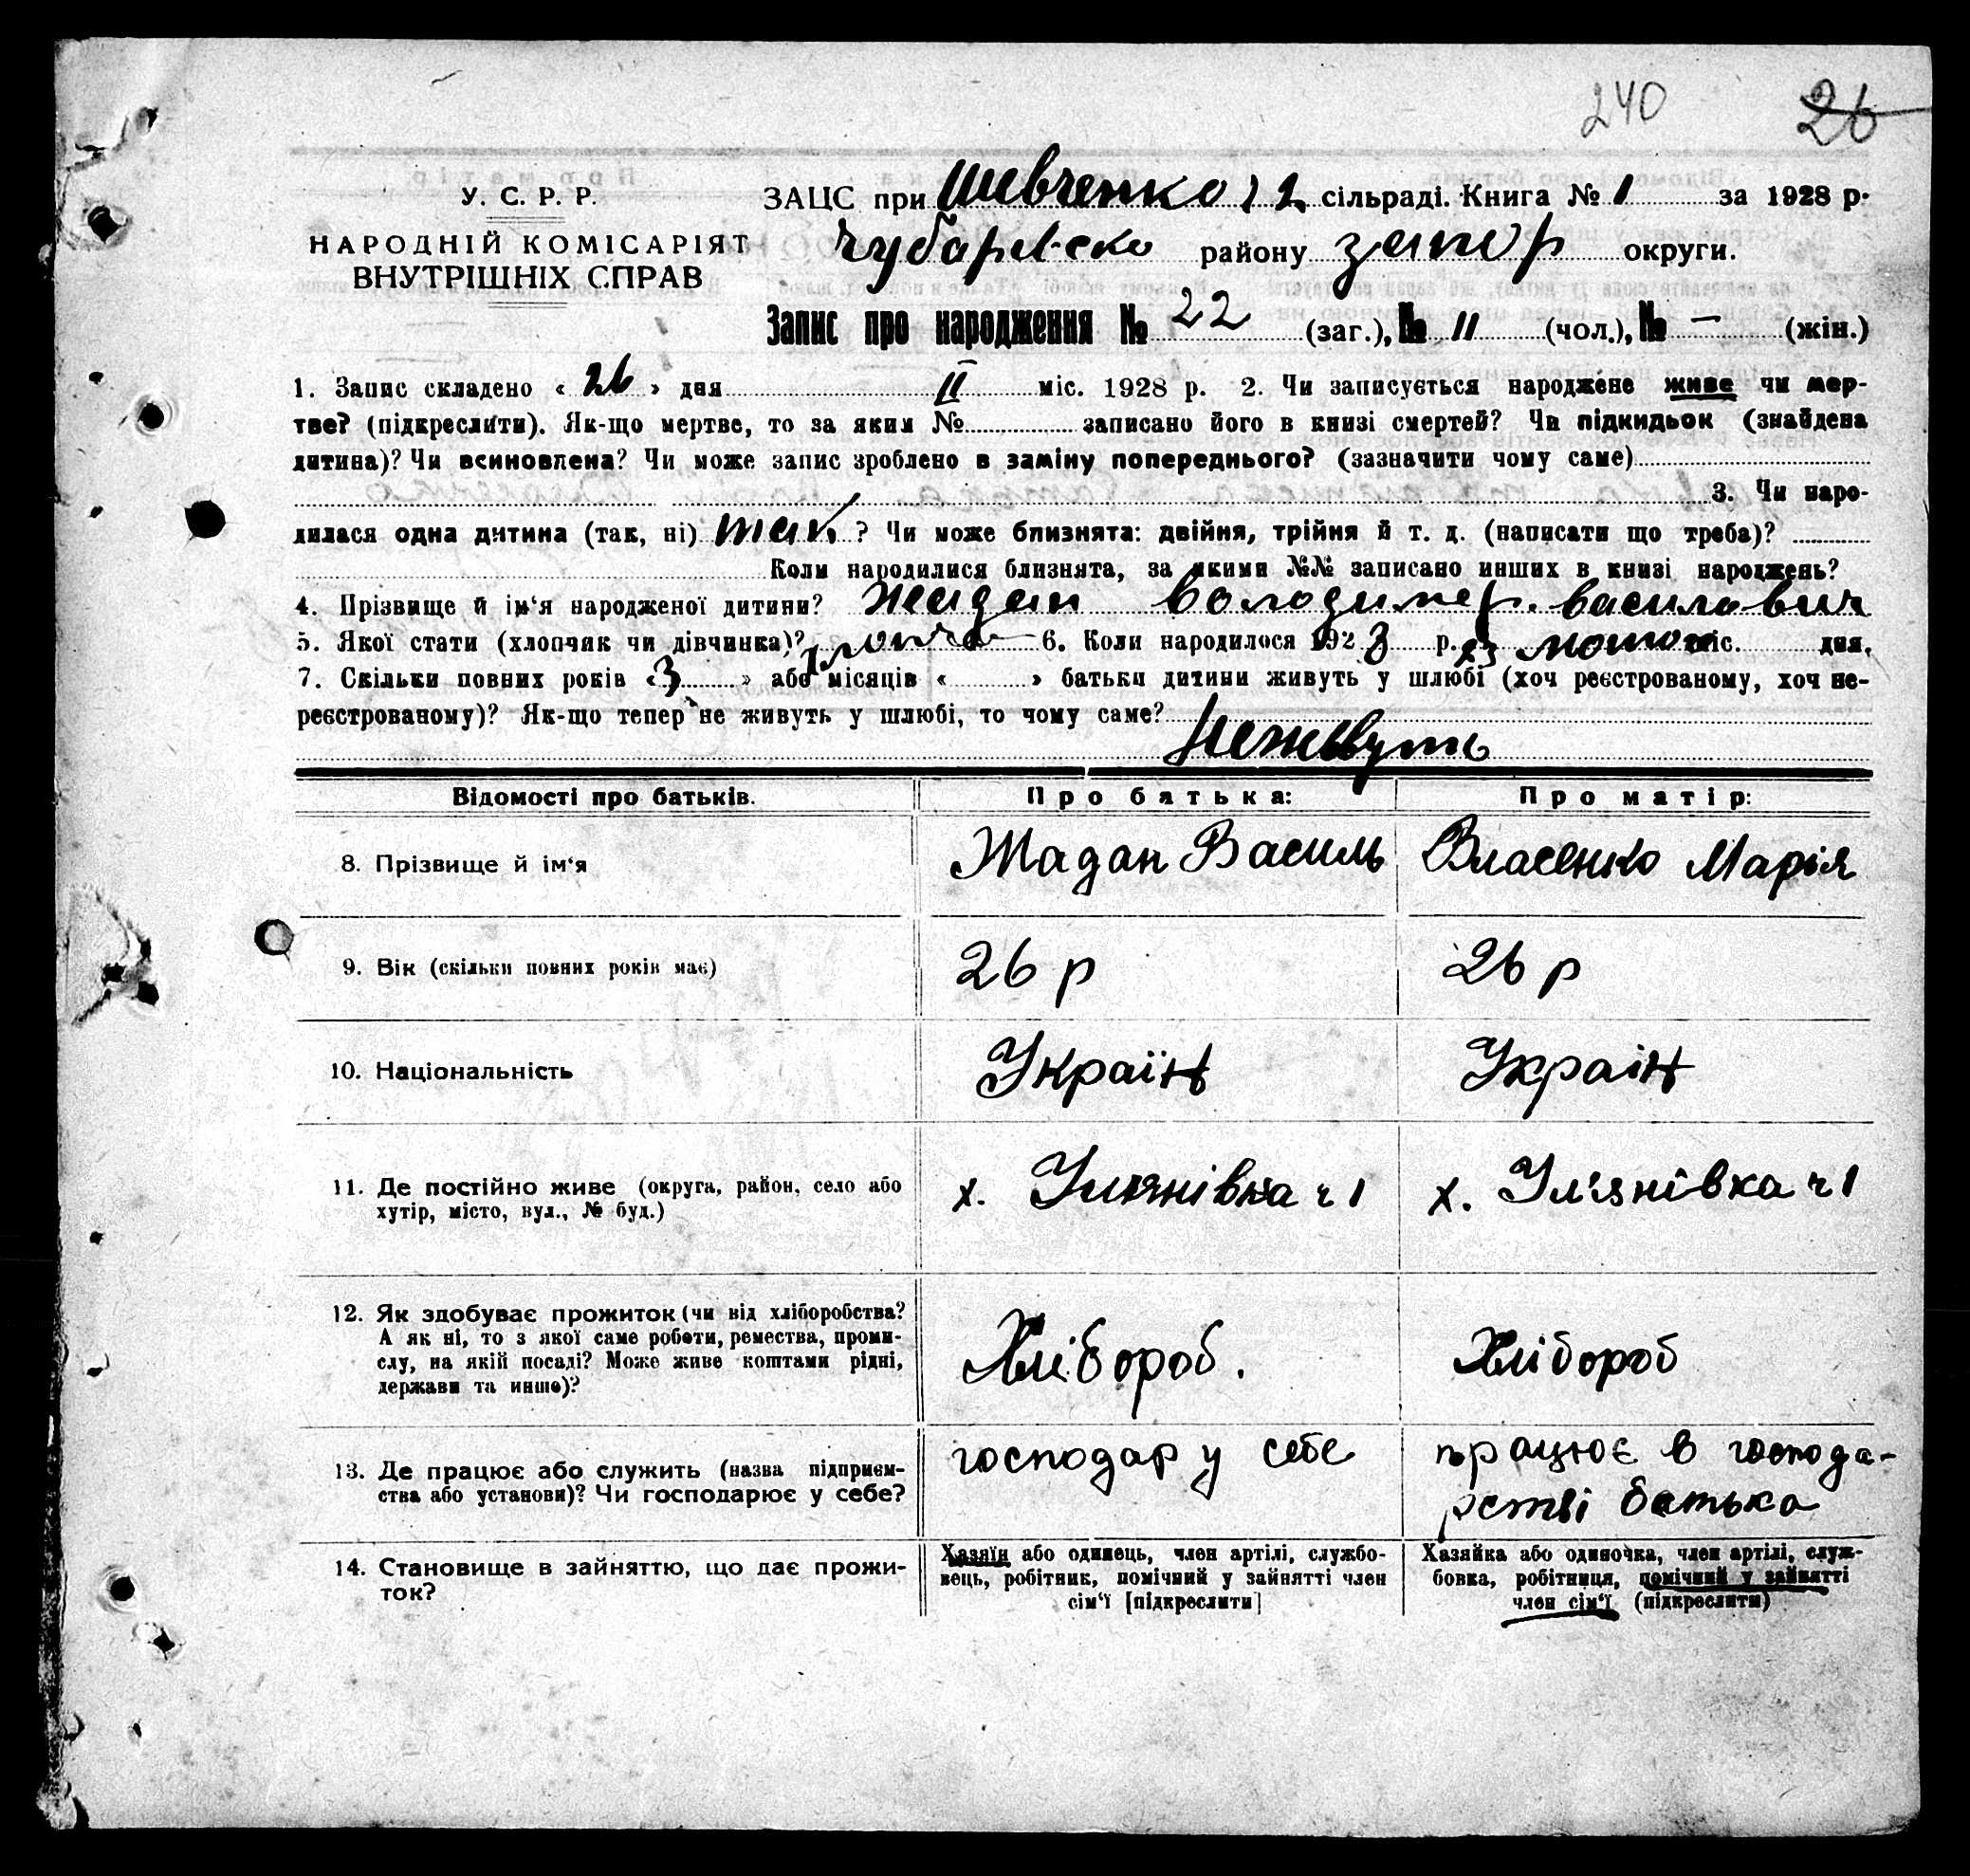 240 26
У. С. Р. Р.
НАРОДНІЙ КОМІСАРІЯТ
ВНУТРІШНІХ СПРАВ
ЗАЦС при Шевченко 2 сільраді. Книга № 1 за 1928 р.
Чубарівсько району Запор округи.
Запис про народження № 22 (заг.), № 11 (чол.), № — (жін.)
1. Запис складено « 26 » дня II міс. 1928 р. 2. Чи записується народжене живе чи мер-
тве? (підкреслити). Як-що мертве, то за яким № записано його в книзі смертей? Чи підкидьок (знайдена
дитина)? Чи всиновлена? Чи може запис зроблено в заміну попереднього? (зазначити чому саме)
3. Чи наро-
дилася одна дитина (так, ні) так ? Чи може близнята: двійня, трійня й т. д. (написати що треба)?
Коли народилися близнята, за якими №№ записано инших в книзі народжень?
4. Прізвище й ім'я народженої дитини? Жадан Володимер. Василович
5. Якої стати (хлопчик чи дівчинка)? 6. Коли народилося 1928 р. 23 лютого міс. дня.
7. Скільки повних років « 3 » або місяців « » батьки дитини живуть у шлюбі (хоч реєстрованому, хоч не-
реєстрованому)? Як-що тепер не живуть у шлюбі, то чому саме?
Неживуть
Відомості про батьків. Про батька: Про матір:
8. Прізвище й ім'я Жадан Василь Власенко Марія
9. Вік (скільки повних років має) 26 р 26 р
10. Національність Україн Украін
11. Де постійно живе (округа, район, село або
хутір, місто, вул., № буд.) х. Улянівка ч 1 х. Ул'янівка ч 1
12. Як здобуває прожиток (чи від хліборобства?
А як ні, то з якої саме роботи, ремества, проми-
слу, на якій посаді? Може живе коштами рідні,
держави та инше)? Хлібороб. Хлібороб
13. Де працює або служить (назва підприєм-
ства або установи)? Чи господарює у себе? господар у себе працює в господа-
рстві батька
14. Становище в зайняттю, що дає прожи-
ток?
Хазяїн або одинець, член артілі, службо-
вець, робітник, помічний у зайнятті член
сім'ї [підкреслити]
Хазяйка або одиночка, член артілі, служ-
бовка, робітниця, помічний у зайнятті
член сім'ї (підкреслити)